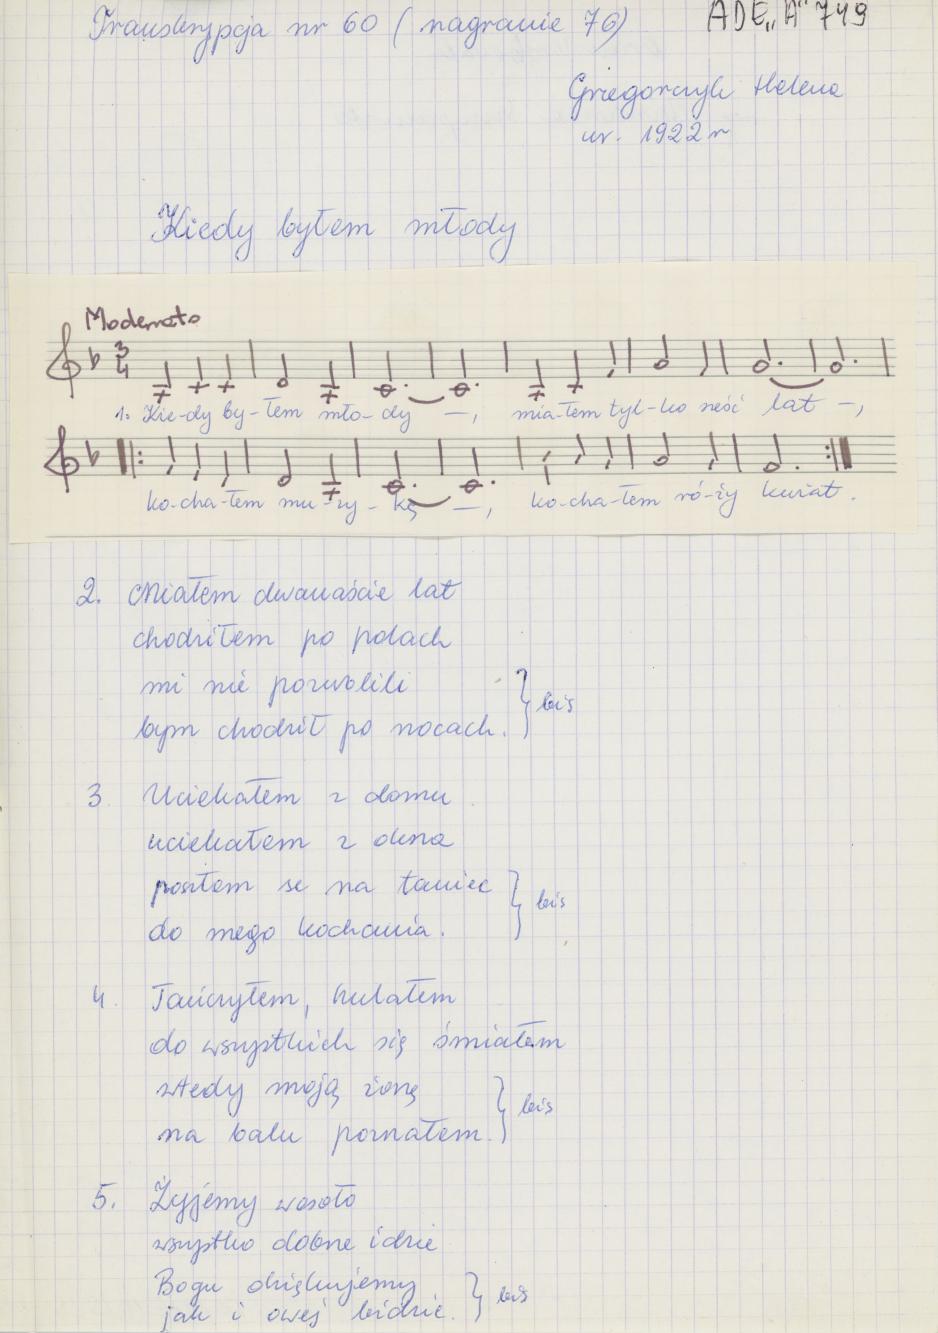 Transkrypcja nr 60 ( nagranie 76)
ADE „A" 749
Grzegorczyk Helena
ur. 1922 r
Kiedy byłem młody
Moderato
3
4
1. Kie-dy by-łem mło-dy —, mia-łem tyl-ko sześć lat —,
ko-cha-łem mu-zy-kę —, ko-cha-łem ró-ży kwiat.
2. Miałem dwanaście lat
chodziłem po polach
mi nie pozwolili
bym chodził po nocach. } bis
3 Uciekałem z domu
uciekałem z okna
poszłem se na taniec
do mego kochania. } bis
4. Tańczyłem, hulałem
do wszystkich się śmiałem
wtedy moją żonę
na balu poznałem } bis
5. Żyjemy wesoło
wszystko dobrze idzie
Bogu dziękujemy
jak i owej bidzie. } bis